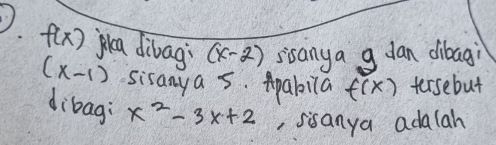 f(x) jika dibagi (x-2) sisanya 9 dan dibagi
(x-1) sisanya 5. Apabila f(x) tersebut
dibagi x² - 3x + 2, sisanya adalah